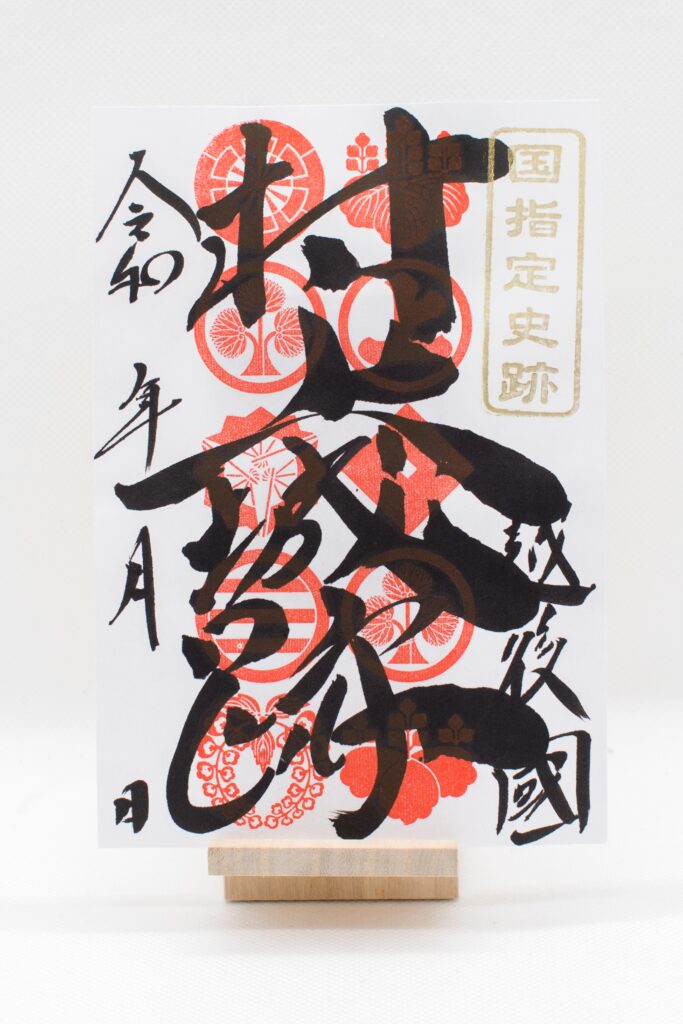 国指定史跡
越後國
村上城跡
令和 年 月 日